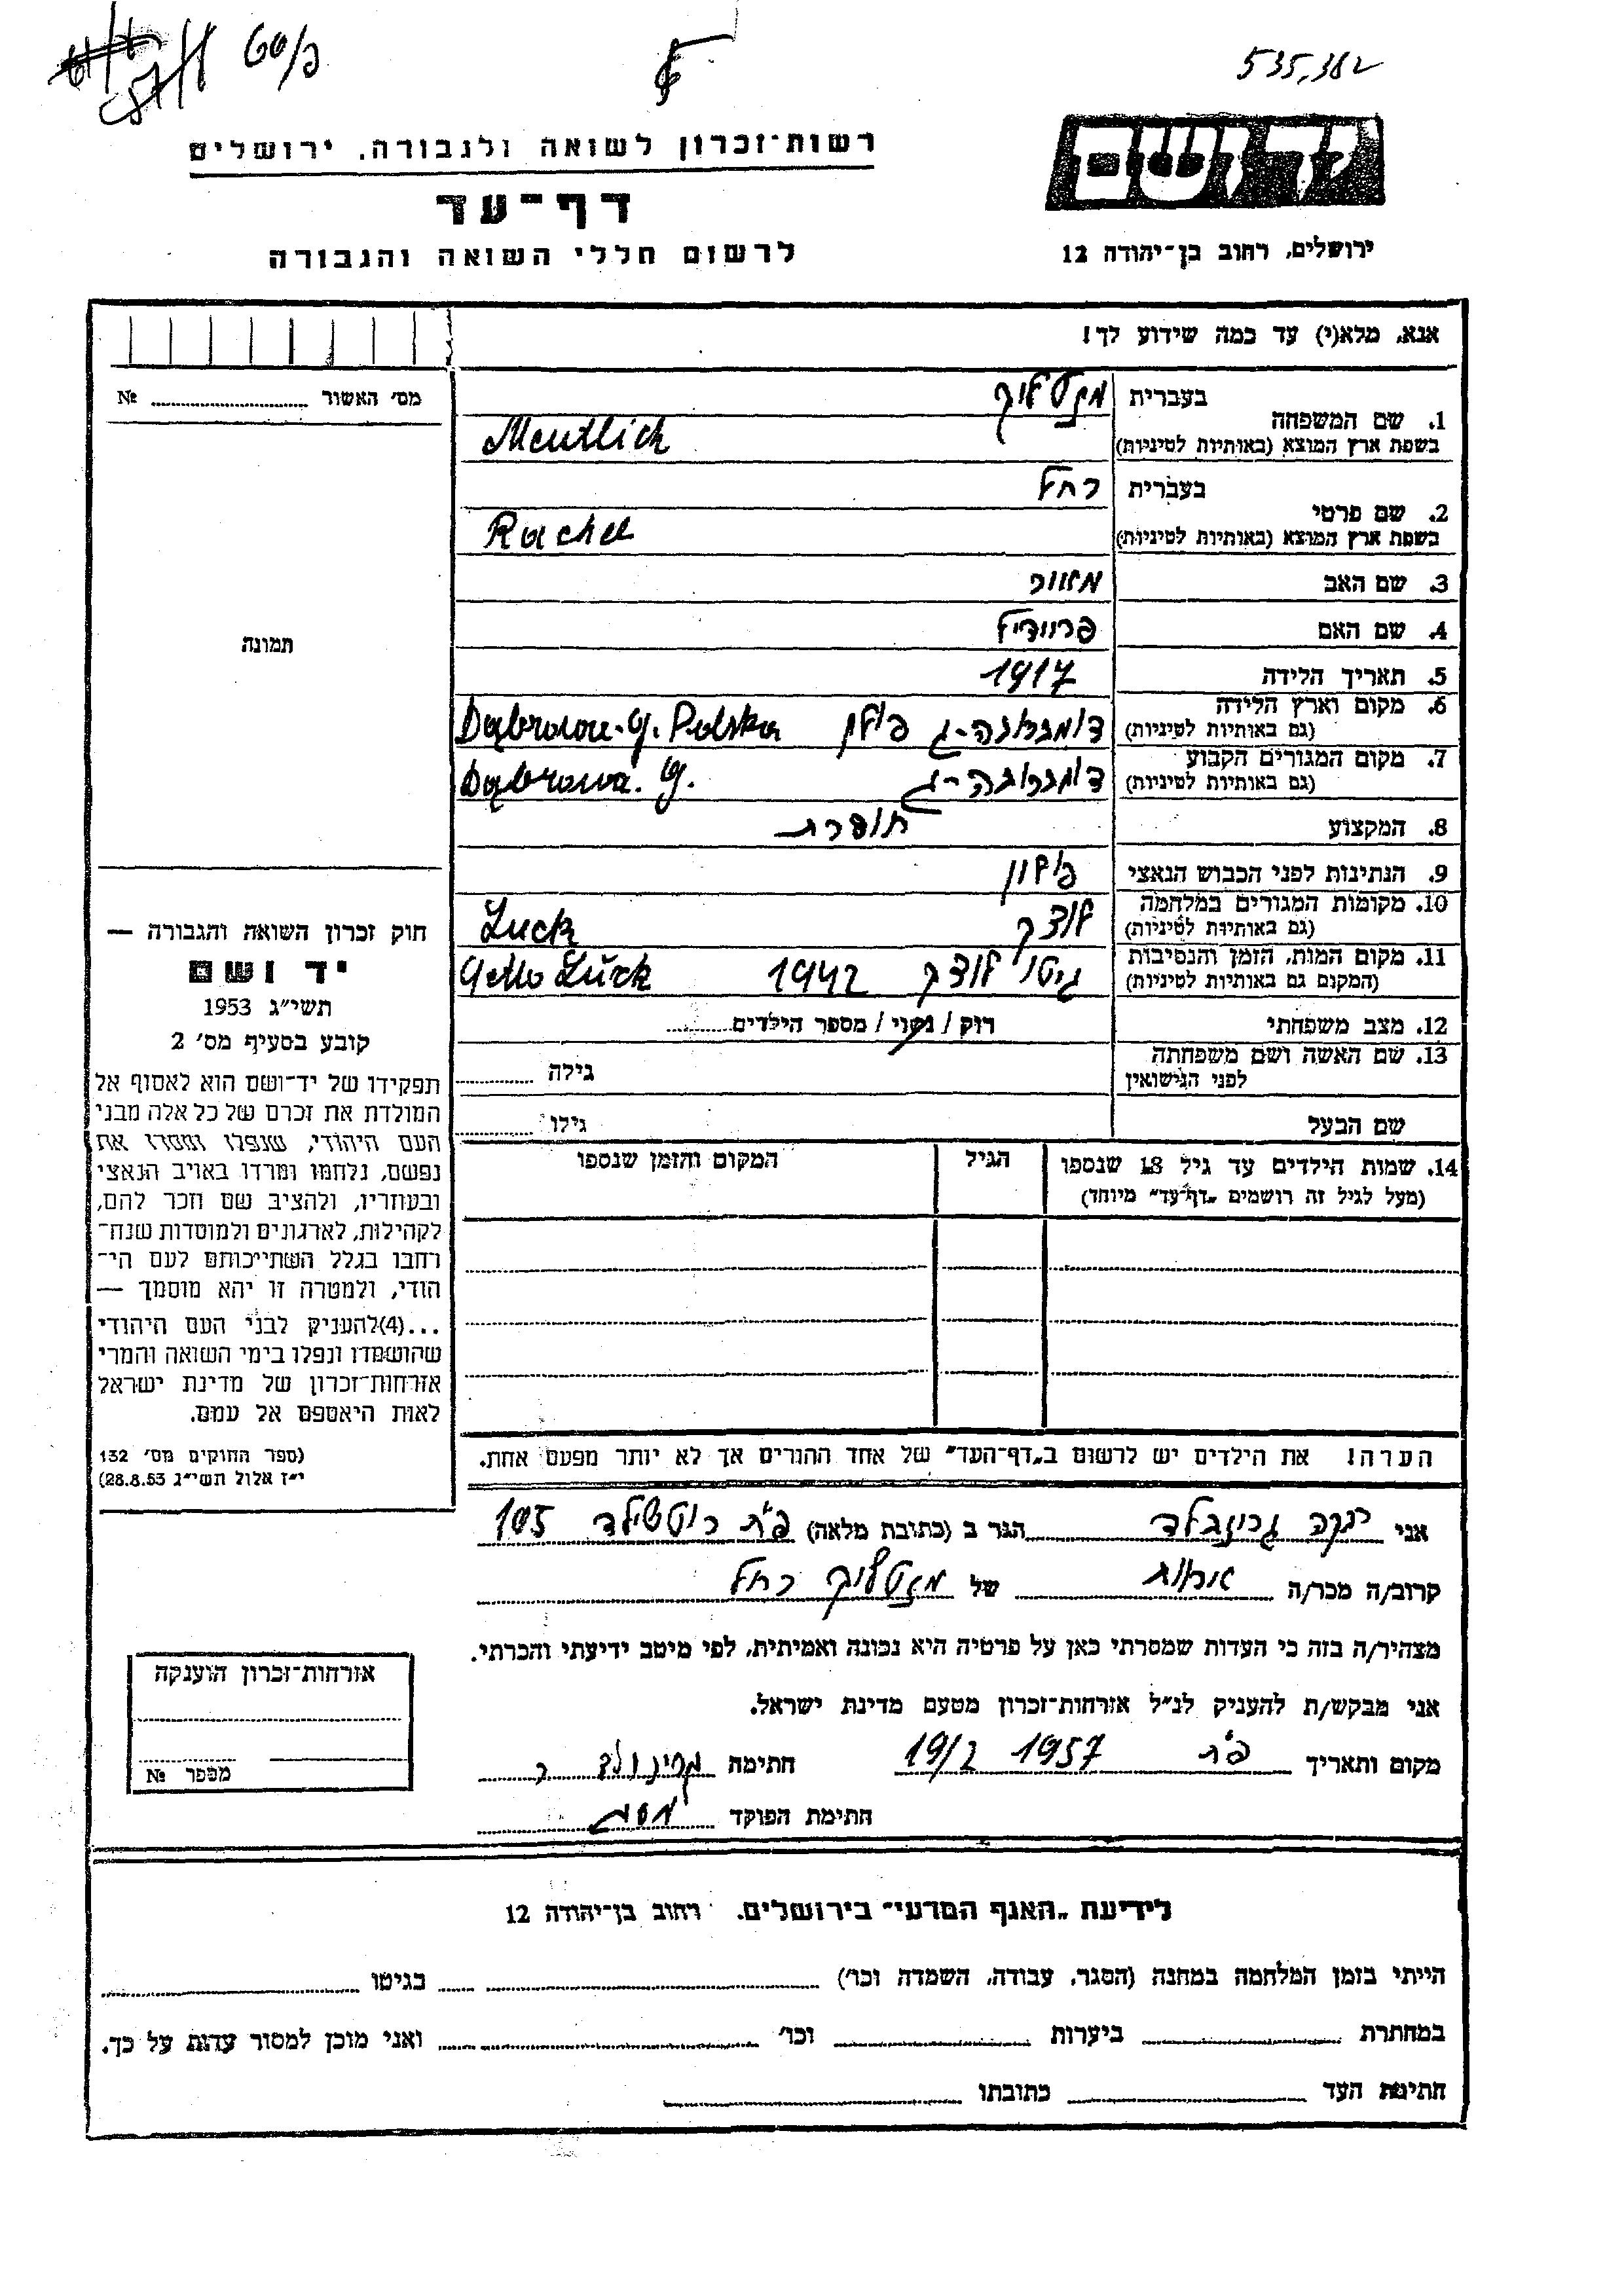 60/ג
535,382
רשות־זכרון לשואה ולגבורה, ירושלים
דף־עד
לרשום חללי השואה והגבורה
יד ושם
ירושלים, רחוב בן־יהודה 12
אנא, מלא(י) עד כמה שידוע לך!
מס׳ האשור № 
1. שם המשפחה
בעברית מנטליך
בשפת ארץ המוצא (באותיות לטיניות) Mentlich
2. שם פרטי
בעברית רחל
בשפת ארץ המוצא (באותיות לטיניות) Rachel
3. שם האב
4. שם האם
5. תאריך הלידה 1917
6. מקום וארץ הלידה
(גם באותיות לטיניות) דומברובה-ג פולין Dąbrowa-g. Polska
7. מקום המגורים הקבוע
(גם באותיות לטיניות) דומברובה-ג Dąbrowa. g.
8. המקצוע תופרת
9. הנתינות לפני הכבוש הנאצי
10. מקומות המגורים במלחמה
(גם באותיות לטיניות) לוצק Łuck
11. מקום המות, הזמן והנסיבות
(המקום גם באותיות לטיניות) גיטו לוצק 1942 Getto Łuck
12. מצב משפחתי רוק / נשוי / מספר הילדים
13. שם האשה ושם משפחתה
לפני הנישואין גילה
שם הבעל גילו
14. שמות הילדים עד גיל 18 שנספו
(מעל לגיל זה רושמים „דף־עד״ מיוחד)
הגיל
המקום והזמן שנספו
תמונה
חוק זכרון השואה והגבורה —
יד ושם
תשי״ג 1953
קובע בסעיף מס׳ 2
תפקידו של יד־ושם הוא לאסוף אל
המולדת את זכרם של כל אלה מבני
העם היהודי, שנפלו ומסרו את
נפשם, נלחמו ומרדו באויב הנאצי
ובעוזריו, ולהציב שם וזכר להם,
לקהילות, לארגונים ולמוסדות שנח־
רחבו בגלל השתייכותם לעם הי־
הודי, ולמטרה זו יהא מוסמך —
...(4)להעניק לבני העם היהודי
שהושמדו ונפלו בימי השואה והמרי
אזרחות־זכרון של מדינת ישראל
לאות היאספם אל עמם.
(ספר החוקים מס׳ 132
י״ז אלול תשי״ג 28.8.53)
הערה! את הילדים יש לרשום ב„דף־העד״ של אחד ההורים אך לא יותר מפעם אחת.
אני רבקה גרינבלד הגר ב (כתובת מלאה) פ״ת רוטשילד 105
קרוב/ה מכר/ה אחות של מנטליך רחל
מצהיר/ה בזה כי העדות שמסרתי כאן על פרטיה היא נכונה ואמיתית, לפי מיטב ידיעתי והכרתי.
אני מבקש/ת להעניק לנ״ל אזרחות־זכרון מטעם מדינת ישראל.
מקום ותאריך פ״ת 19/2 1957 חתימה
חתימת הפוקד
אזרחות־זכרון הוענקה
מספר №
לידיעת „האגף המדעי״ בירושלים, רחוב בן־יהודה 12
הייתי בזמן המלחמה במחנה (הסגר, עבודה, השמדה וכו׳) בגיטו
במחתרת ביערות וכו׳ ואני מוכן למסור עדות על כך.
חתימת העד כתובתו